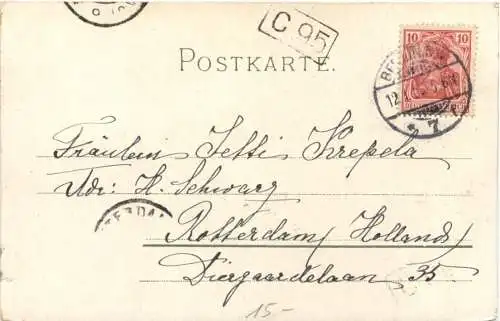 C 95
POSTKARTE.
10 10
12.
7
Fräulein Jetti Krepela
Adr: H. Schwarz
Rotterdam (Holland)
Diergaardelaan 35
15.-